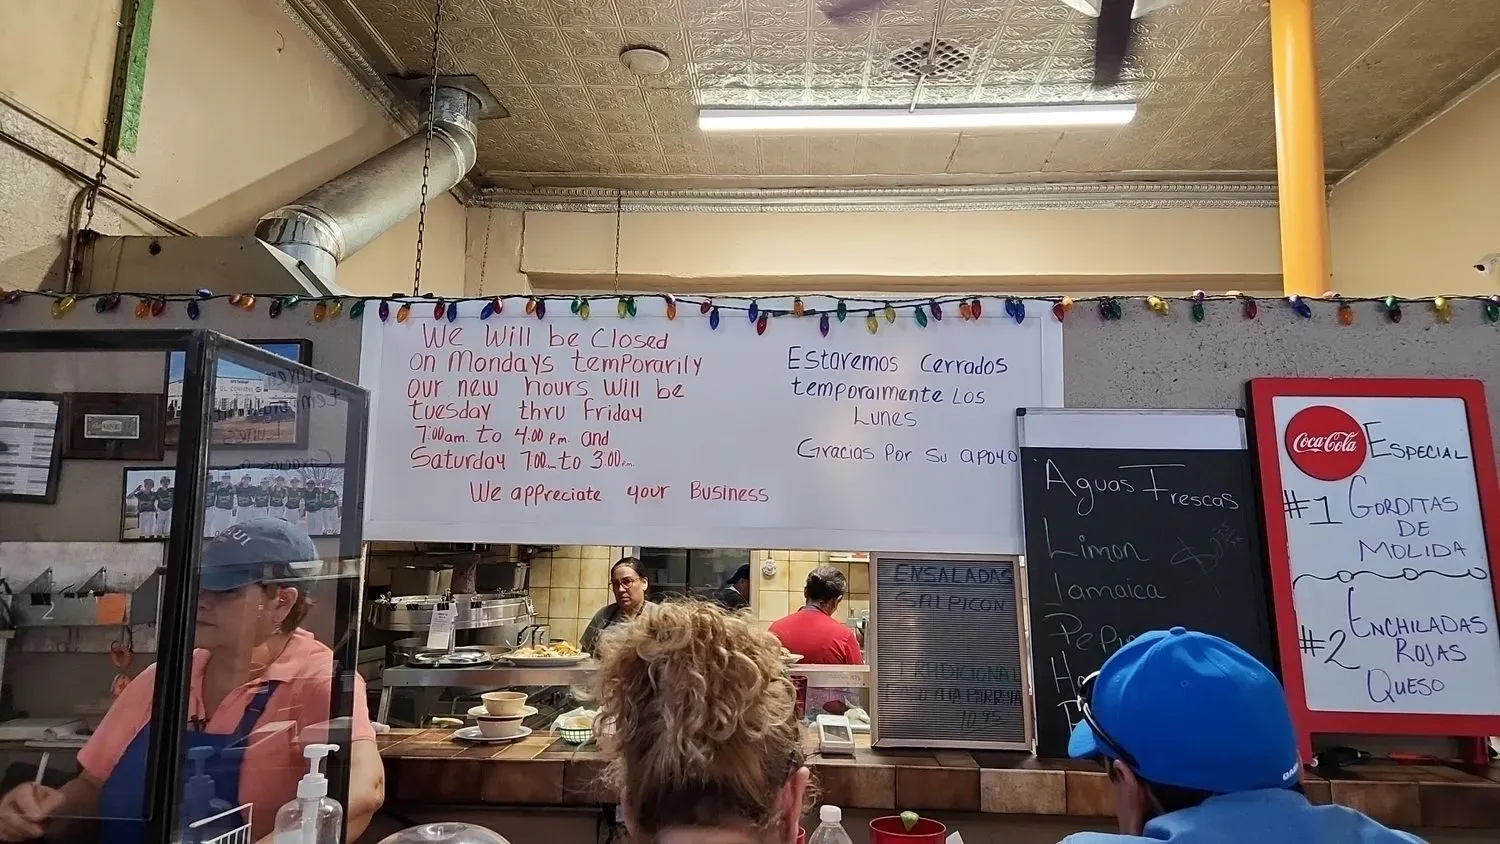 We Will be Closed
on Mondays temporarily
our new hours will be
tuesday thru Friday
7:00am to 4:00 pm and
Saturday 7:00am to 3:00pm
We appreciate your Business
Estaremos Cerrados
temporalmente Los
Lunes
Gracias Por Su apoyo
Aguas Frescas
Limon
Jamaica
ENSALADAS
SALPICON
10.95
Coca-Cola
ESPECIAL
#1 GORDITAS
DE
MOLIDA
#2 ENCHILADAS
ROJAS
QUESO
2